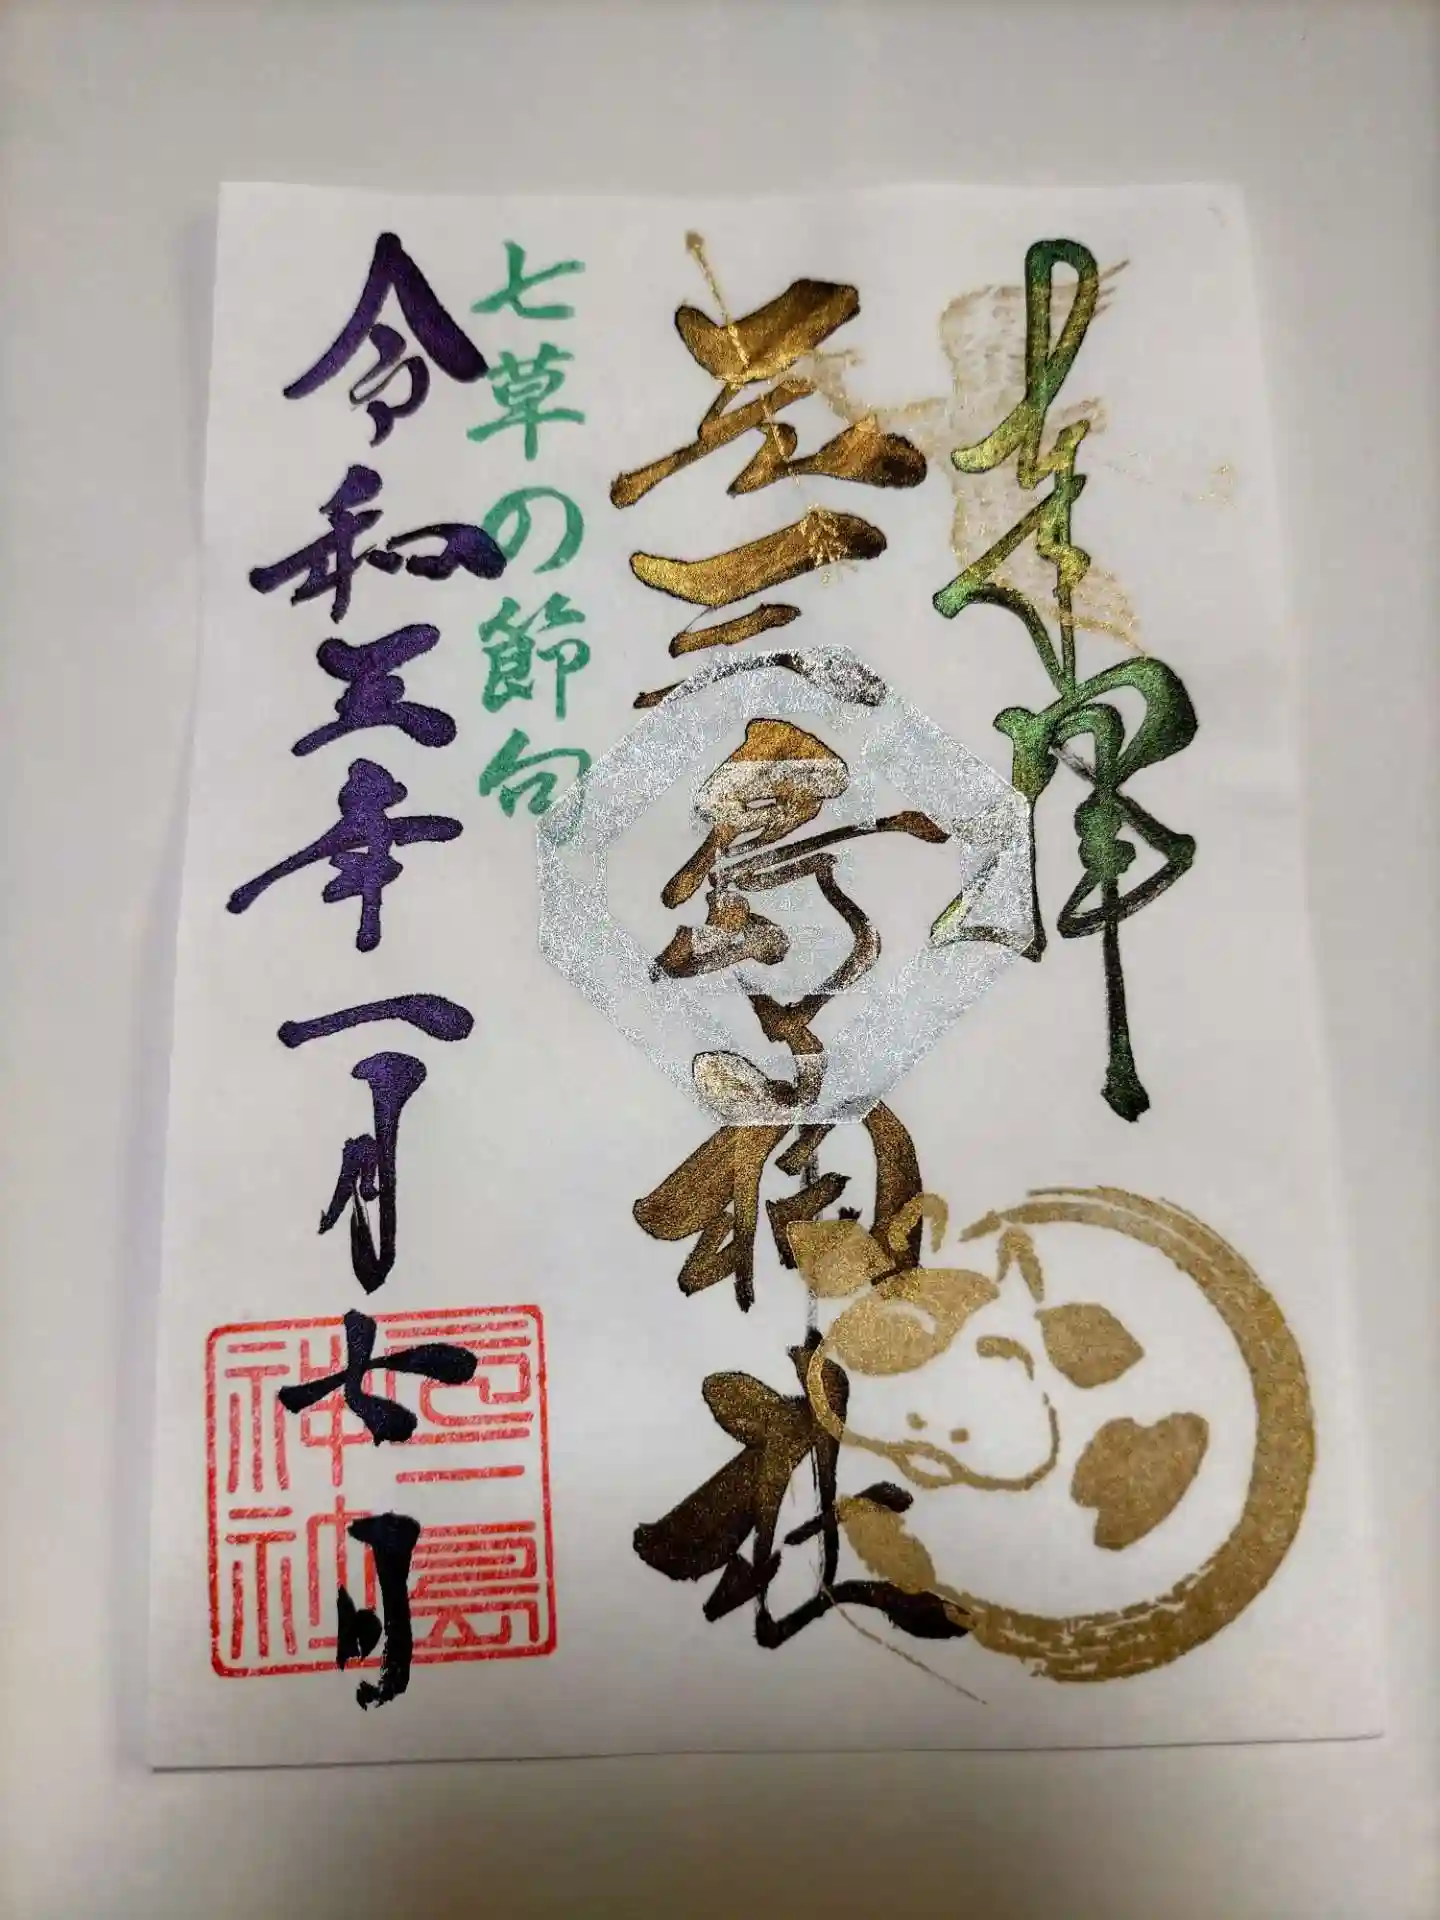 奉拝
元三島神社
七草の節句
令和三年一月七日
元三島
神社